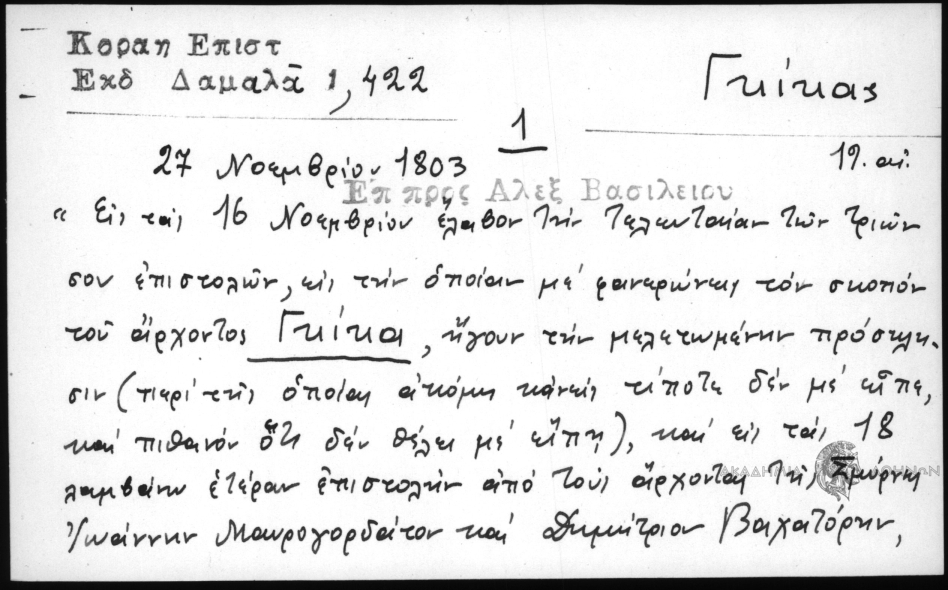 Κοραη Επιστ
Εκδ Δαμαλᾶ 1, 422
Γκίκας
1
27 Νοεμβρίου 1803
19. αἰ.
Επ προς Αλεξ Βασιλειου
"Εἰς τάς 16 Νοεμβρίου ἔλαβον τήν τελευταίαν τῶν τριῶν
σου ἐπιστολῶν, εἰς τήν ὁποίαν μέ φανερώνεις τόν σκοπόν
τοῦ ἄρχοντος Γκίκα, ἤγουν τήν μελετωμένην πρόσκλη-
σιν (περί τῆς ὁποίας ἀκόμη κἀνείς τίποτε δέν μέ εἶπε,
καί πιθανόν ὅτι δέν θέλει μέ εἴπῃ), καί εἰς τάς 18
λαμβάνω ἑτέραν ἐπιστολήν ἀπό τούς ἄρχοντας τῆς Σμύρνης
Ἰωάννην Μαυρογορδᾶτον καί Δημήτριον Βαχατόρην,
ΑΚΑΔΗΜΙΑ ΑΘΗΝΩΝ